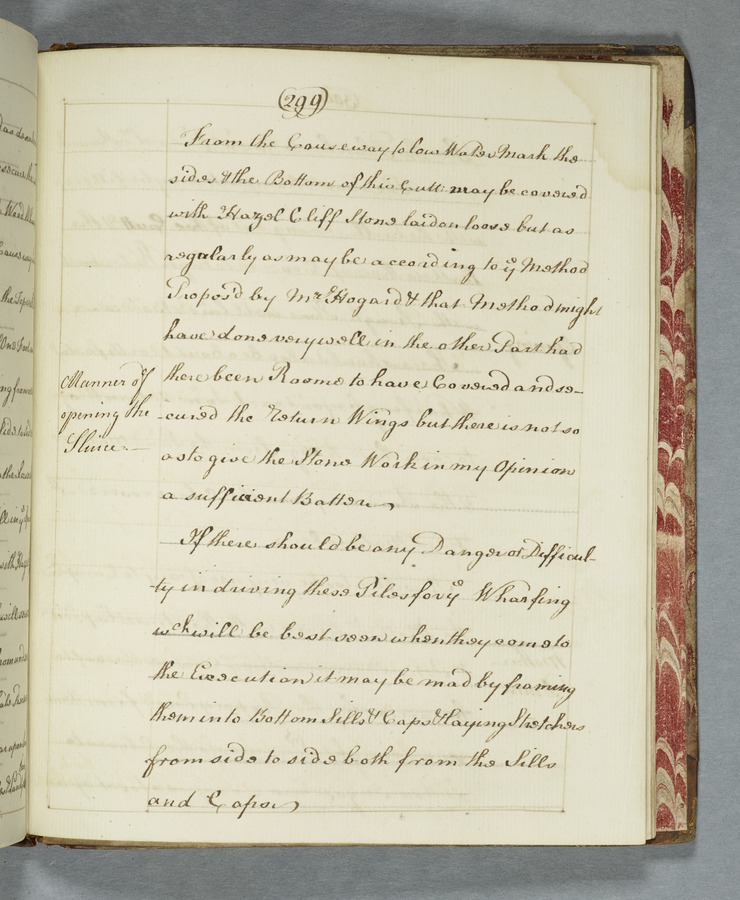 299
From the Causeway to low Water Mark the
sides & the Bottom of this Cutt may be covered
with Hazel Cliff Stone laid on loose but as
regularly as may be according to yͤ Method
Propos'd by Mr. Hogard & that Method might
have done very well in the other Part had
Manner of
opening the
Sluice
there been Roome to have Covered and se-
cured the Return Wings but there is not so
as to give the Stone Work in my Opinion
a sufficient Batter
If there should be any Danger or Difficul-
ty in driving these Piles for yͤ Wharfing
wch will be best seen when they come to
the Execution it may be mad by framing
them into Bottom Sills & Caps & laying Stretchers
from side to side both from the Sills
and Caps